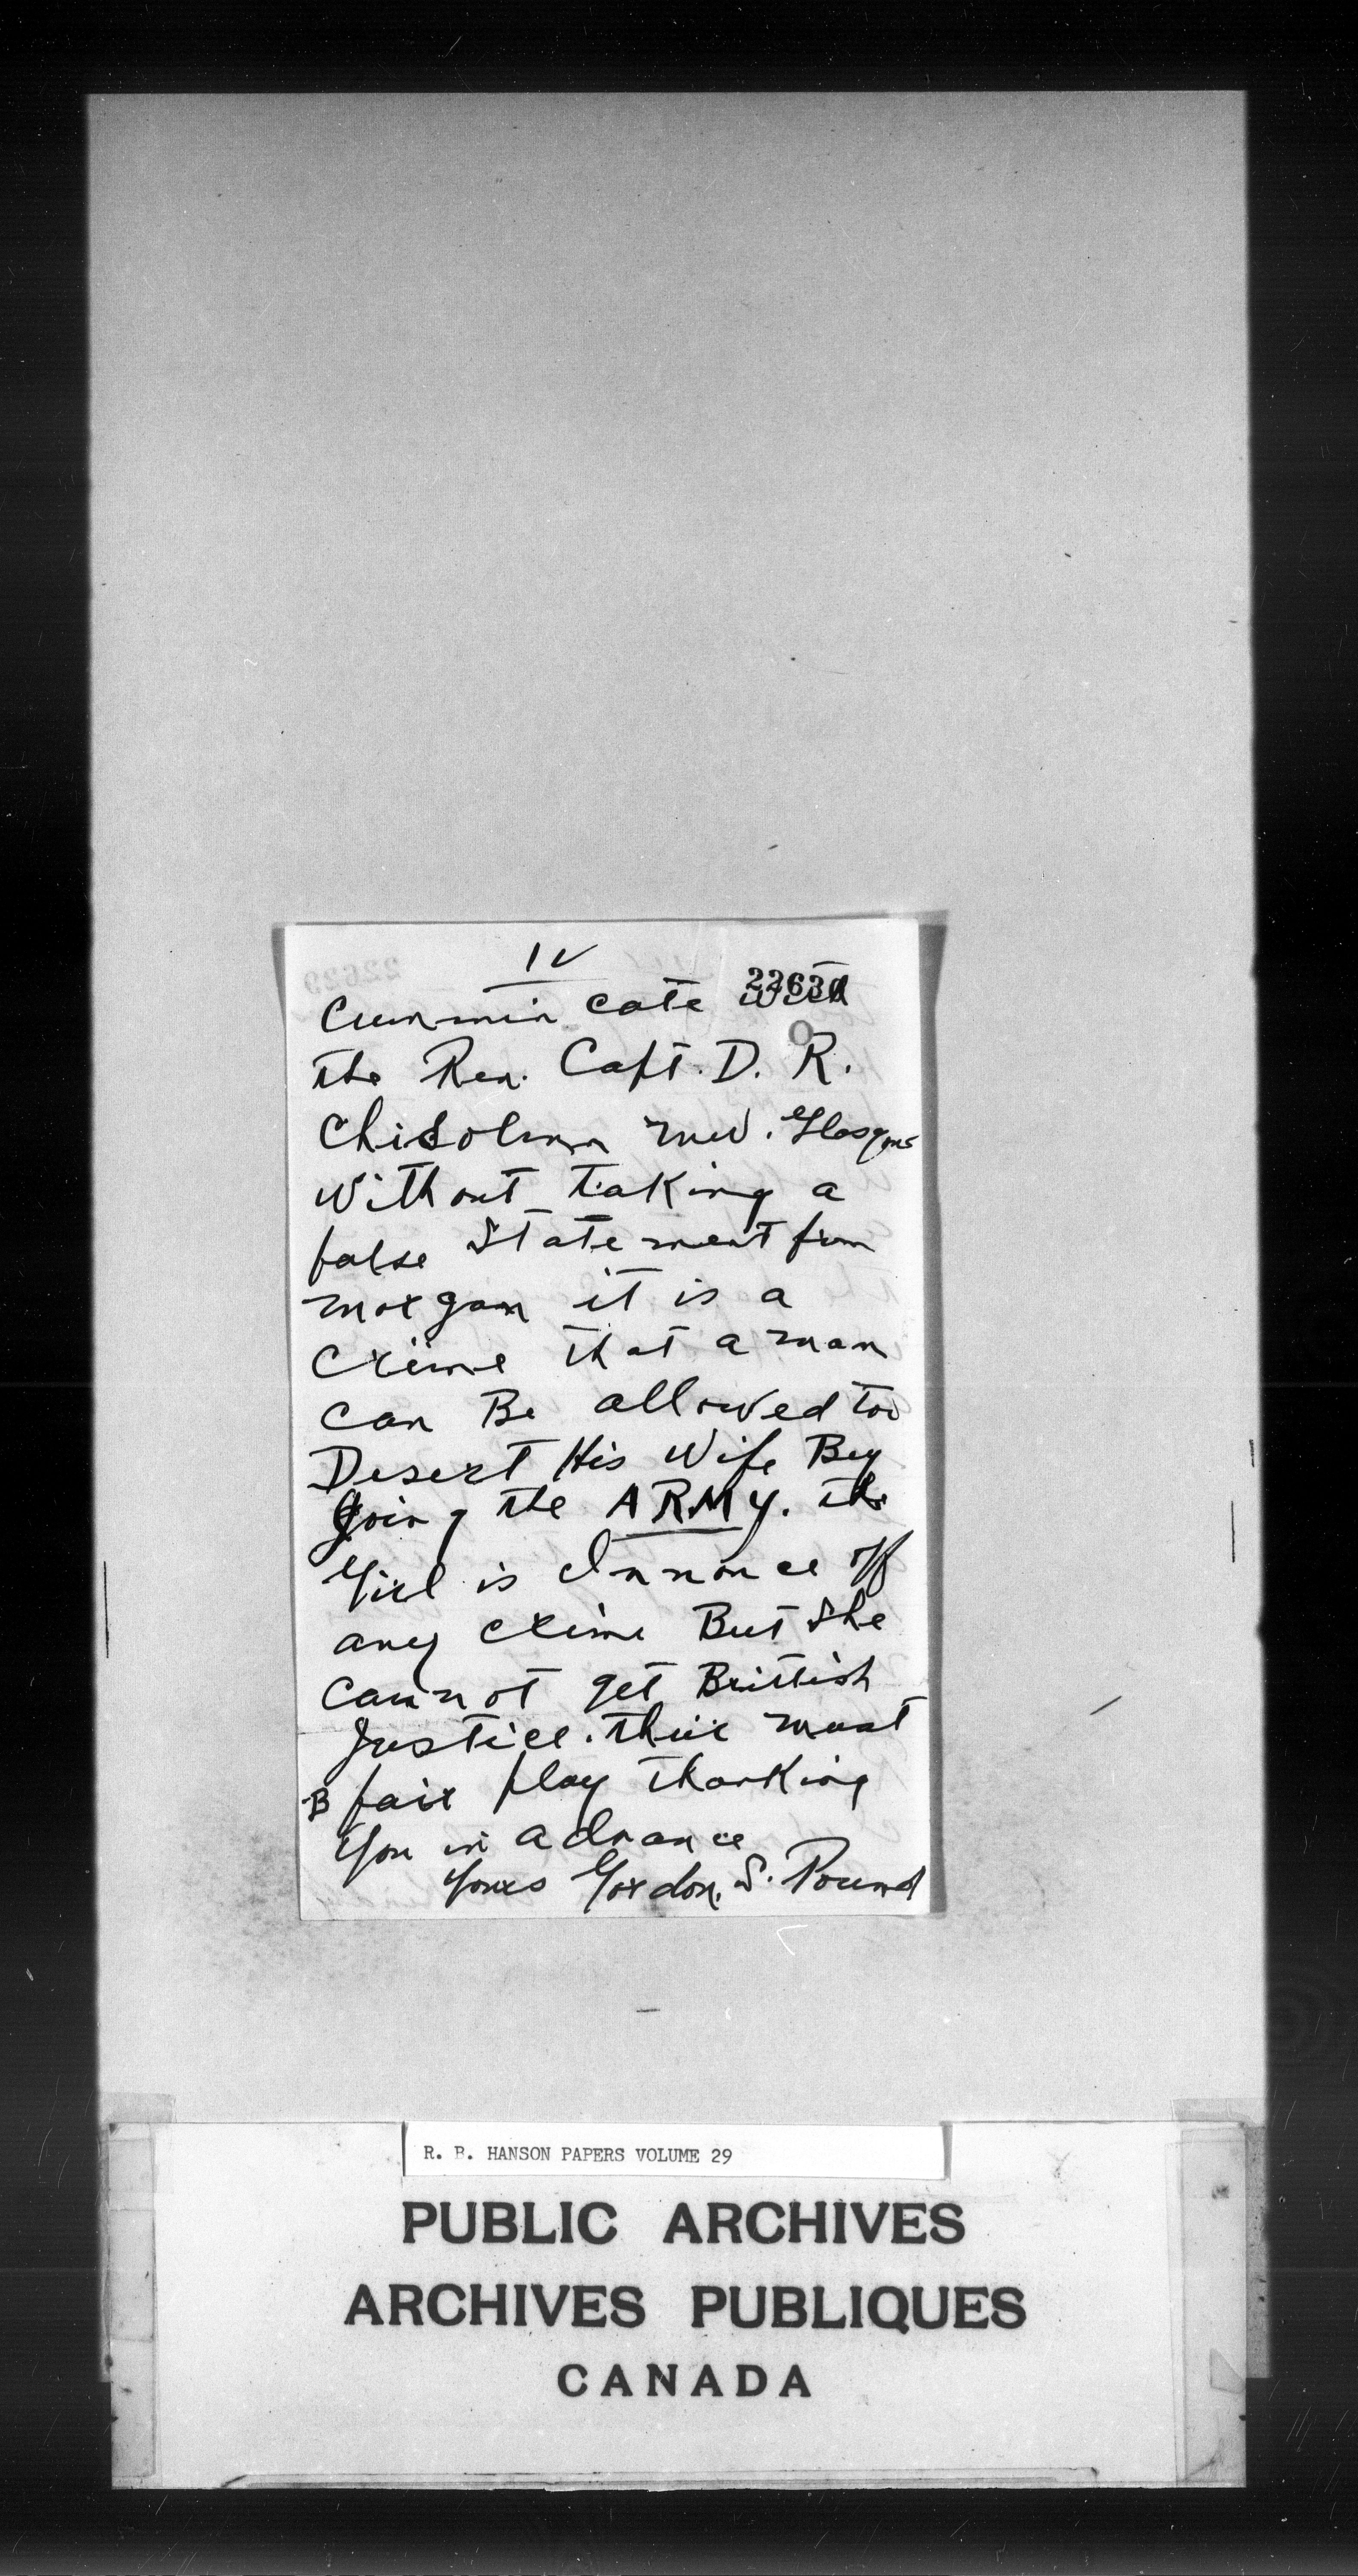 IV
22630
Cummin cate with
the Rev. Capt. D. R.
Chisolmn new. Glasgow
Without taking a
false Statement from
morgan it is a
Crime that a man
can Be allowed too
Desert His Wife Bey
Joing the ARMY. the
Girl is Innonce off
any crime But She
cannot get Brittish
Justice. their must
B fair play thanking
you in advance
yours Gordon. S. Pound
R. B. HANSON PAPERS VOLUME 29
PUBLIC ARCHIVES
ARCHIVES PUBLIQUES
CANADA